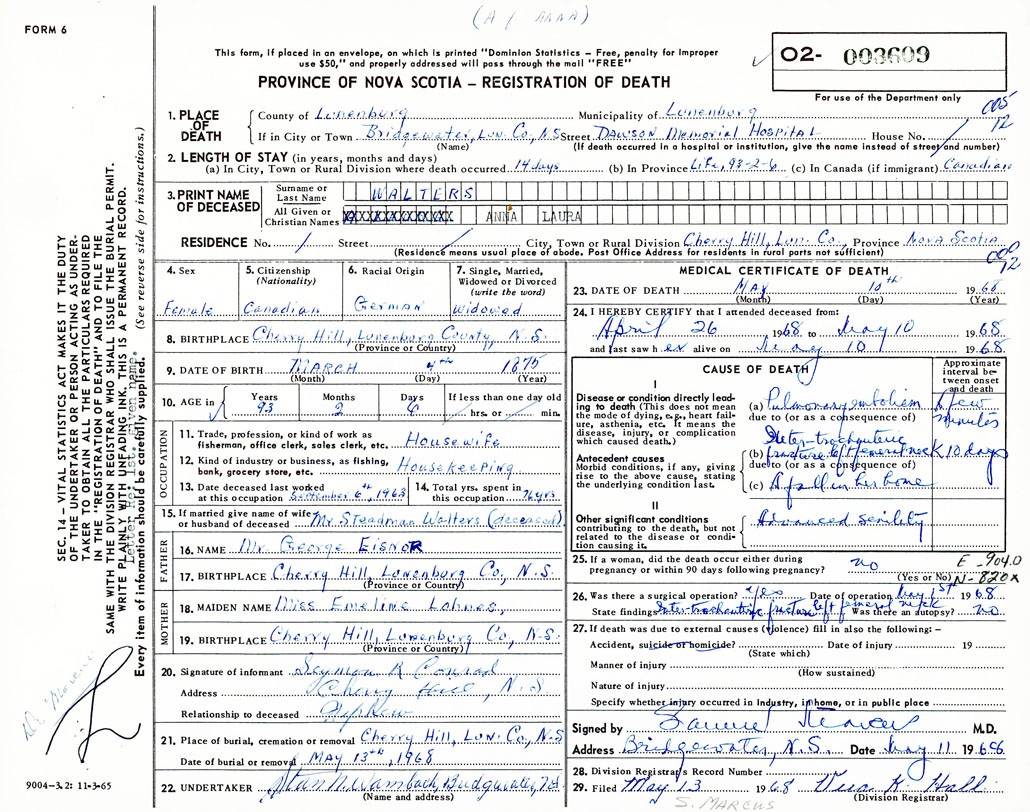 (A / ANNA)
FORM 6
This form, if placed in an envelope, on which is printed "Dominion Statistics – Free, penalty for improper
use $50," and properly addressed will pass through the mail "FREE"
PROVINCE OF NOVA SCOTIA – REGISTRATION OF DEATH
O2- 003609
For use of the Department only
005
12
1. PLACE OF DEATH
County of Lunenburg Municipality of Lunenburg
If in City or Town Bridgewater, Lun. Co., N.S Street Dawson Memorial Hospital House No. /
(Name) (If death occurred in a hospital or institution, give the name instead of street and number)
2. LENGTH OF STAY (in years, months and days)
(a) In City, Town or Rural Division where death occurred 14 days (b) In Province Life, 93-2-6 (c) In Canada (if immigrant) Canadian
3. PRINT NAME OF DECEASED
Surname or Last Name WALTERS
All Given or Christian Names ANNA LAURA
RESIDENCE No. / Street / City, Town or Rural Division Cherry Hill, Lun. Co., Province Nova Scotia
(Residence means usual place of abode. Post Office Address for residents in rural parts not sufficient)
000
12
4. Sex
Female
5. Citizenship
(Nationality)
Canadian
6. Racial Origin
German
7. Single, Married,
Widowed or Divorced
(write the word)
Widowed
8. BIRTHPLACE Cherry Hill, Lunenburg County, N.S.
(Province or Country)
9. DATE OF BIRTH MARCH 4th 1875
(Month) (Day) (Year)
10. AGE in Years Months Days If less than one day old
93 2 6 hrs. or min.
OCCUPATION
11. Trade, profession, or kind of work as
fisherman, office clerk, sales clerk, etc. Housewife
12. Kind of industry or business, as fishing,
bank, grocery store, etc. Housekeeping
13. Date deceased last worked
at this occupation September 6th, 1963
14. Total yrs. spent in
this occupation 76 yrs
15. If married give name of wife
or husband of deceased Mr. Steadman Walters (deceased)
FATHER
16. NAME Mr. George Eisnor
17. BIRTHPLACE Cherry Hill, Lunenburg Co., N.S.
(Province or Country)
MOTHER
18. MAIDEN NAME Miss Emeline Lohnes,
19. BIRTHPLACE Cherry Hill, Lunenburg Co, N.S.
(Province or Country)
20. Signature of informant Seymour R Conrad
Address Cherry Hill, N.S
Relationship to deceased Nephew
21. Place of burial, cremation or removal Cherry Hill, Lun. Co, N.S
Date of burial or removal MAY 13th, 1968
22. UNDERTAKER Wambach, Bridgewater, NS
(Name and address)
MEDICAL CERTIFICATE OF DEATH
23. DATE OF DEATH MAY 10th 1968
(Month) (Day) (Year)
24. I HEREBY CERTIFY that I attended deceased from:
April 26 1968 to May 10 1968
and last saw h er alive on May 10 1968
CAUSE OF DEATH
Approximate
interval between
onset
and death
I
Disease or condition directly leading
to death (This does not mean
the mode of dying, e.g., heart failure,
asthenia, etc. It means the
disease, injury, or complication
which caused death.)
(a) Pulmonary embolism few minutes
due to (or as a consequence of)
Antecedent causes
Morbid conditions, if any, giving
rise to the above cause, stating
the underlying condition last.
Inter-trochanteric
(b) fracture left femoral neck 10 days
due to (or as a consequence of)
(c) A fall in her home
II
Other significant conditions
contributing to the death, but not
related to the disease or condition
causing it.
Advanced senility
25. If a woman, did the death occur either during
pregnancy or within 90 days following pregnancy? no
(Yes or No)
E-904.0
N-820X
26. Was there a surgical operation? yes Date of operation May 1st 1968
State findings Inter-trochanteric fracture left femoral neck Was there an autopsy? no
27. If death was due to external causes (violence) fill in also the following: –
Accident, suicide or homicide? Date of injury 19
(State which)
Manner of injury
(How sustained)
Nature of injury
Specify whether injury occurred in industry, in home, or in public place
Signed by Samuel Marcus M.D.
Address Bridgewater, N.S. Date May 11 1968
28. Division Registrar's Record Number
29. Filed May 13 1968 K. Hall
(Division Registrar)
S. MARCUS
SEC. 14 – VITAL STATISTICS ACT MAKES IT THE DUTY
OF THE UNDERTAKER OR PERSON ACTING AS UNDERTAKER
TO OBTAIN ALL THE PARTICULARS REQUIRED
IN THE "REGISTRATION OF DEATH" AND TO FILE THE
SAME WITH THE DIVISION REGISTRAR WHO SHALL ISSUE THE BURIAL PERMIT.
WRITE PLAINLY WITH UNFADING INK. THIS IS A PERMANENT RECORD.
Letter Re: 1st. given name.
Every item of information should be carefully supplied. (See reverse side for instructions.)
Dr Marcus
9004-3.2: 11-3-65